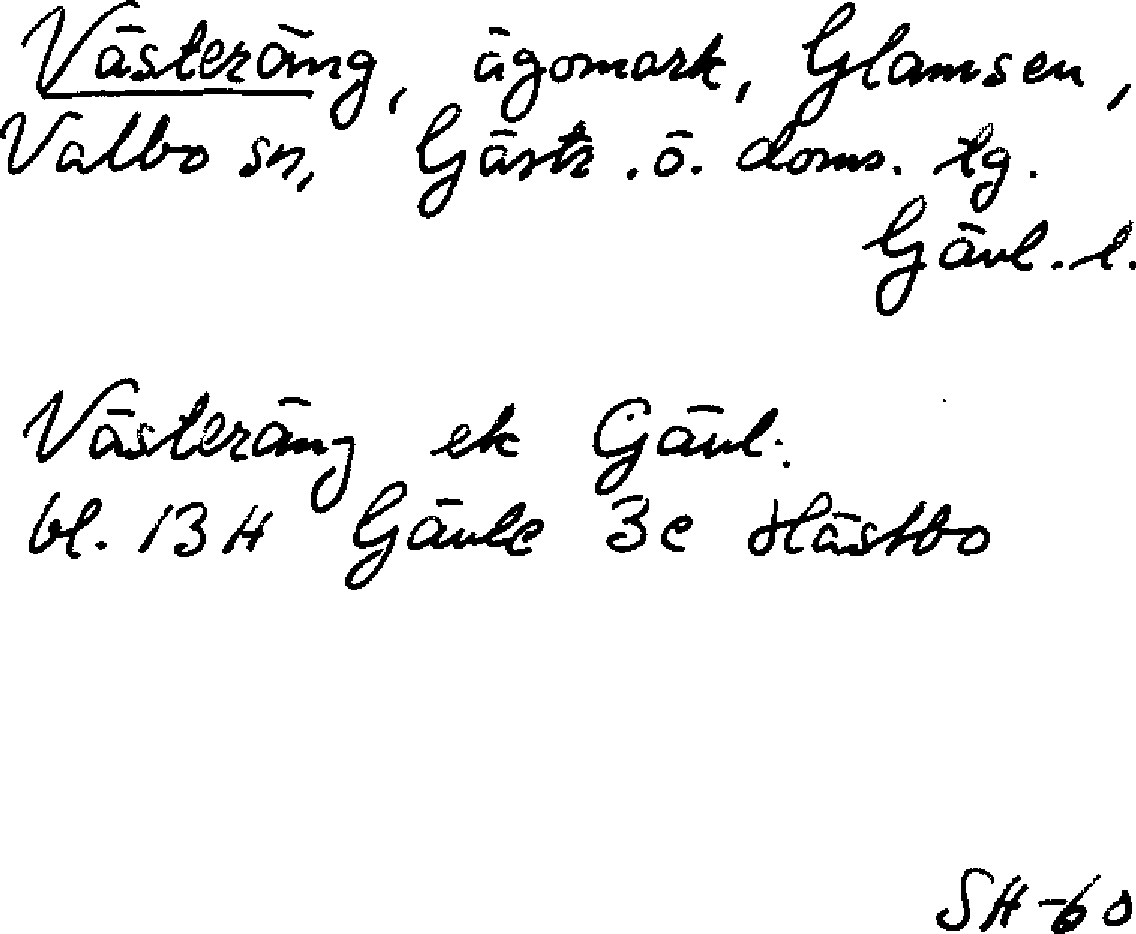 Västeräng, ägomark, Glamsen,
Valbo sn, Gästr. ö. doms. tg.
Gävl. l.
Västeräng ek Gävl.
bl. 13H Gävle 3c Hästbo
SH-60